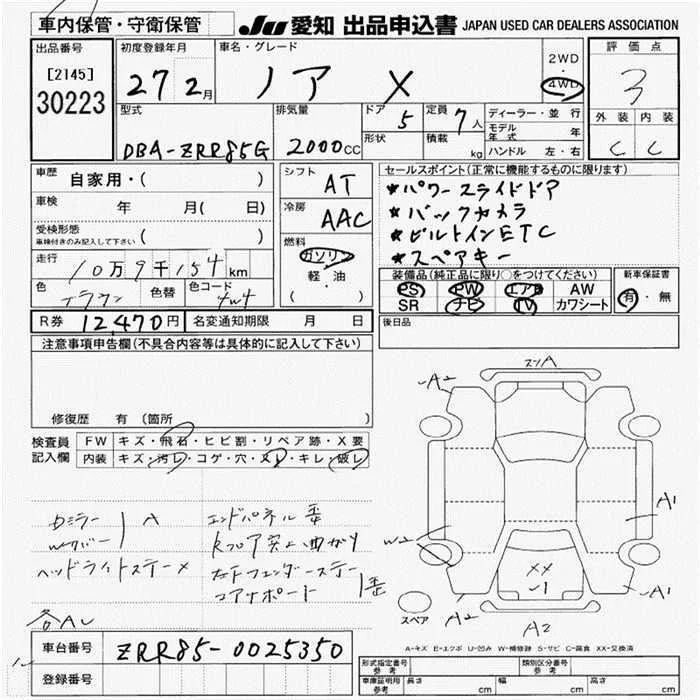 車内保管・守衛保管
JU 愛知 出品申込書 JAPAN USED CAR DEALERS ASSOCIATION
出品番号
[2145]
30223
初度登録年月
27 2月
車名・グレード
ノア X
2WD
・
4WD
評価点
3
外装 内装
C C
型式
DBA-ZRR85G
排気量
2000cc
ドア
5
形状
定員
7人
積載
kg
ディーラー・並行
モデル年式 年
ハンドル 左・右
車歴
自家用・( )
車検
年 月( 日)
受検形態
車検付きのみ記入して下さい ( )
走行
10万9千154km
色
ブラウン
色替
色コード
4W4
シフト
AT
冷房
AAC
燃料
ガソリン
軽・油
( )
セールスポイント(正常に機能するものに限ります)
★パワースライドドア
★バックカメラ
★ビルトインETC
★スペアキー
装備品(純正品に限り○をつけてください)
PS PW エアB AW
SR ナビ TV カワシート
新車保証書
有・無
R券 12,470円 名変通知期限 月 日
後日品
注意事項申告欄(不具合内容等は具体的に記入して下さい)
修復歴 有 (箇所 )
検査員記入欄
FW キズ・飛石・ヒビ割・リペア跡・X要
内装 キズ・汚レ・コゲ・穴・スレ・キレ・破レ
Dミラー
Wカバー
A
ヘッドライトステーメ
エンドパネル歪
Rフロア突上曲がり
右Fフェンダーステー
コアサポート
歪
各AU
A2
スンA
A1
W2
XX
A2
A2
A1
スペア
A-キズ E-エクボ U-凹み W-補修跡 S-サビ C-腐食 XX-交換済
車台番号 ZRR85-0025350
登録番号
形式指定番号
参考
類別区分番号
参考
車庫証明用
参考
長さ cm
幅 cm
高さ cm